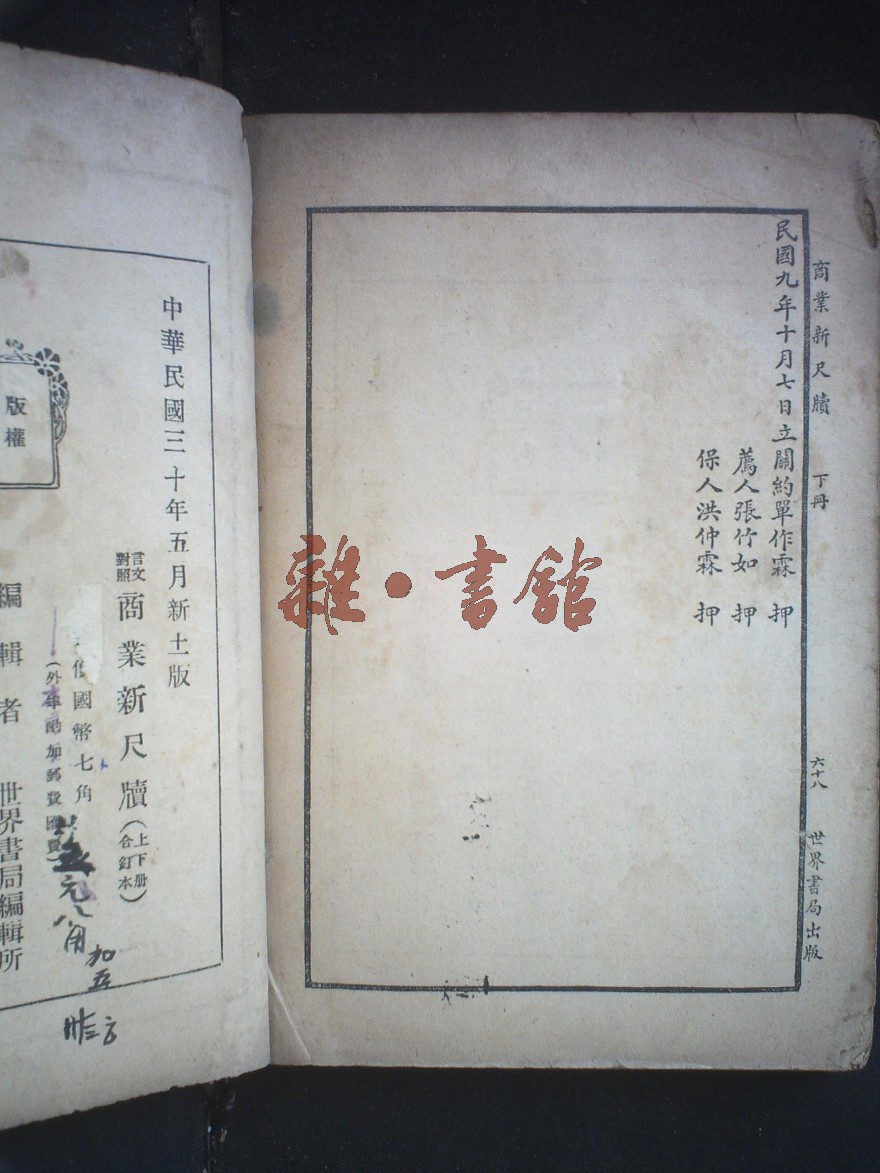 商業新尺牘 下冊 六十八 世界書局出版
民國九年十月七日立關約單作霖 押
薦人張竹如 押
保人洪仲霖 押
雜·書舘
中華民國三十年五月新土版
言文對照 商業新尺牘（上下册合訂本）
國幣七角
（外埠酌加郵費匯費）
元八角
加五
版權
編輯者 世界書局編輯所